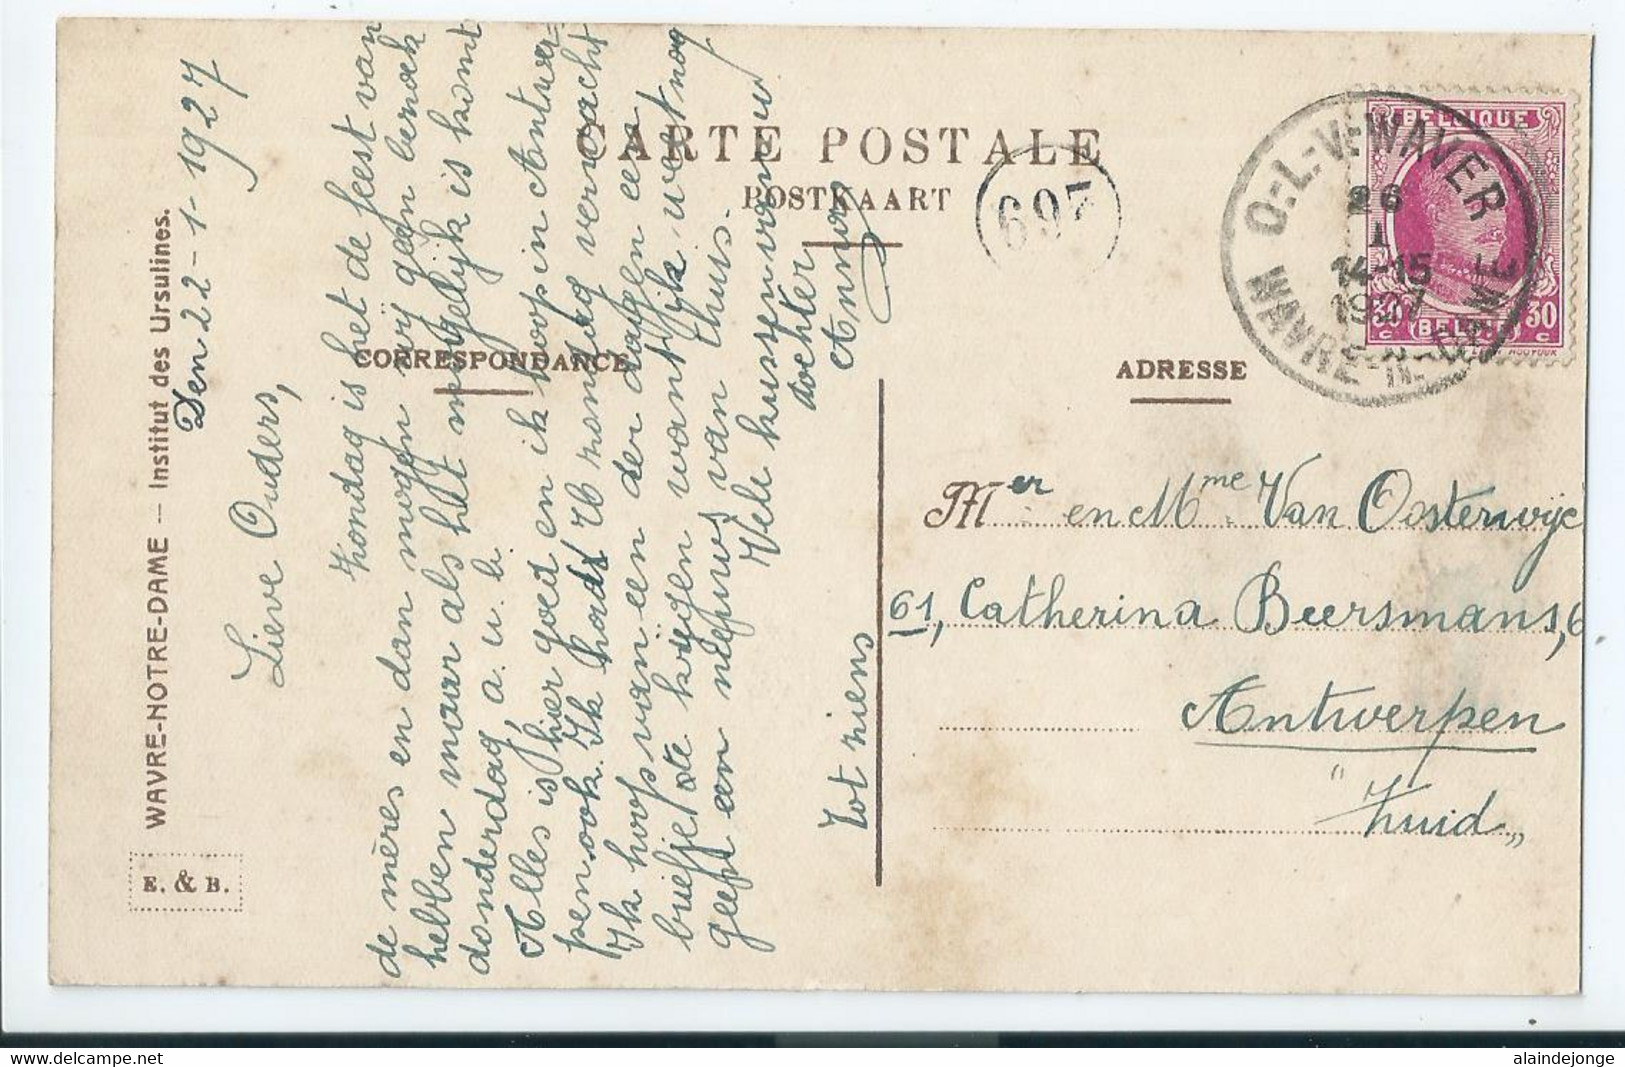 CARTE POSTALE
POSTKAART
697
O.-L.-V.-WAVER
26
I
14-15
1927
WAVRE-N.-DAME
BELGIQUE
30 30
c (BELGIË) c
CORRESPONDANCE
ADRESSE
WAVRE-NOTRE-DAME — Institut des Ursulines.
E. & B.
Den 22-1-1927
Lieve Ouders,
Zondag is het de feest van
de mères en dan mogen wij geen bezoek
hebben maar als het mogelijk is komt
donderdag, a. u. b.
Alles is hier goed en ik hoop in Antwer=
pen ook. Ik hadt U zondag verwacht
Ik hoop van een der dagen een
briefje te krijgen want ik weet nog
geen nieuws van thuis.
Vele kussen van uw
dochter
Anna
Tot ziens
Mer en Mme Van Oosterwijc
61, Catherina Beersmans, 6
Antwerpen
"Zuid„
alaindejonge